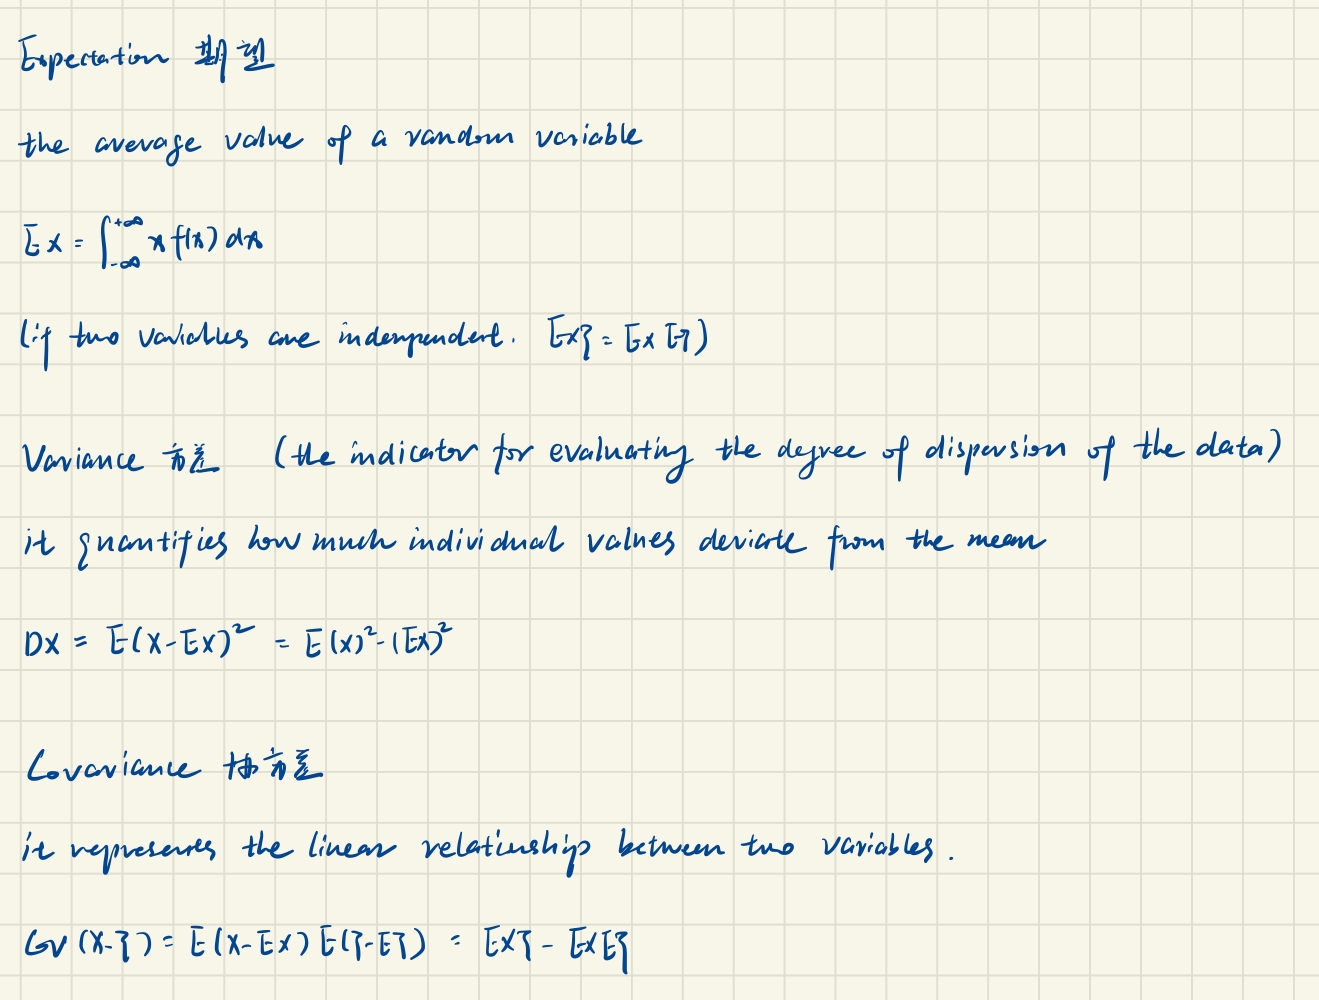 Expectation 期望
the average value of a random variable
Ex = ∫_{-∞}^{+∞} x f(x) dx
(if two variables are indenpendent. Exy = Ex Ey)
Variance 方差 (the indicator for evaluating the degree of dispersion of the data)
it quantifies how much individual values deviate from the mean
DX = E(X-EX)² = E(X)²-(EX)²
Covariance 协方差
it represents the linear relationship between two variables.
Cov(X-Y) = E(X-EX)E(Y-EY) = EXY - EXEY